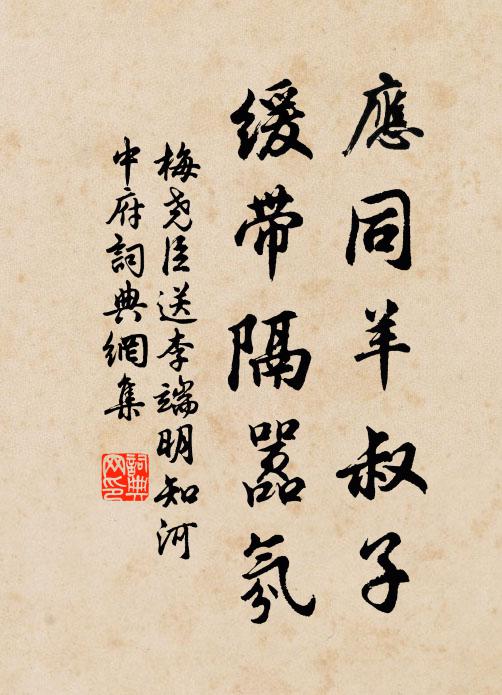 應同羊叔子
緩帶隔嚣氛
梅尧臣送李端明知河
中府詞典網集
詞典
网印